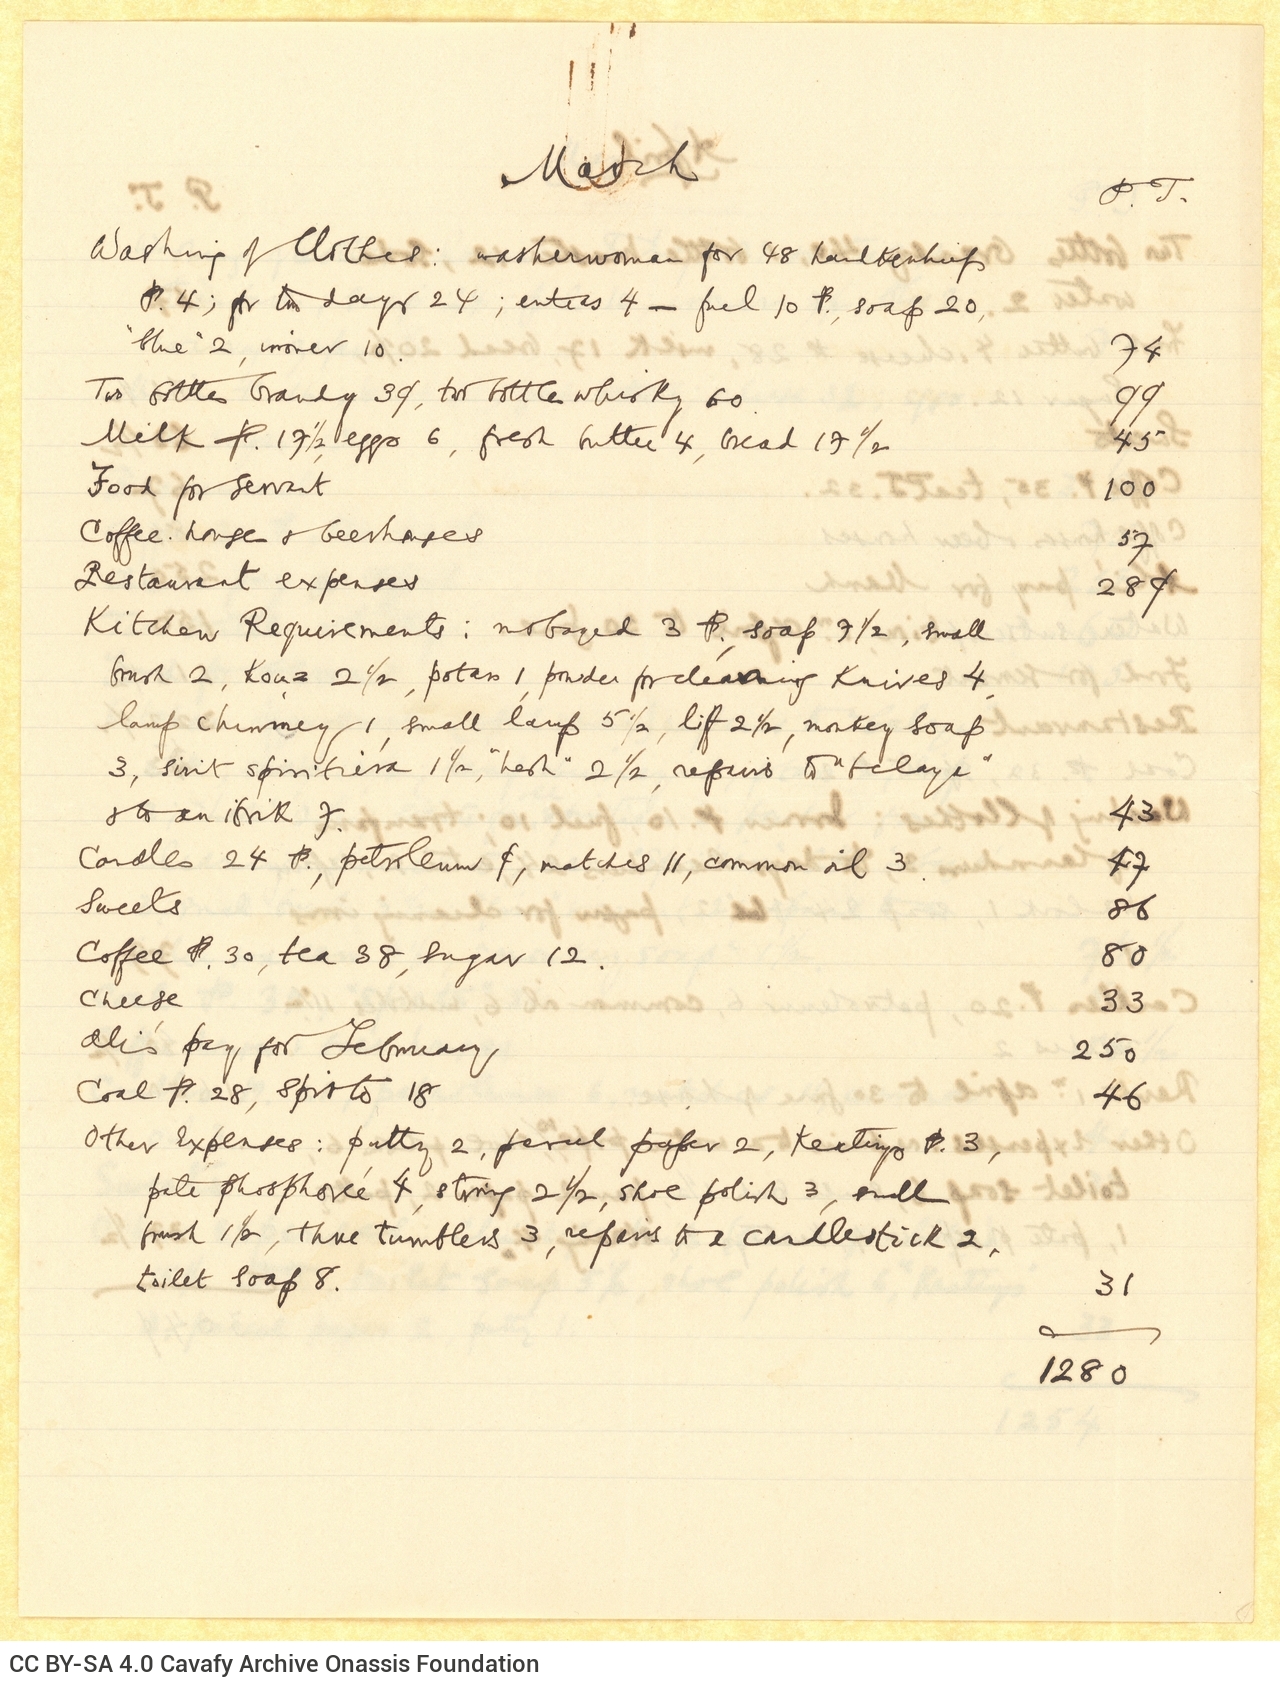 March
P. T.
Washing of Clothes: washerwoman for 48 handkerchiefs
P. 4; for two days 24; extras 4 — fuel 10 P., soap 20,
"blue" 2, ironer 10. 74
Two bottles brandy 39, two bottles whisky 60 99
Milk P. 17½, eggs 6, fresh butter 4, bread 17½ 45
Food for servant 100
Coffee-houses & beerhouses 57
Restaurant expenses 289
Kitchen Requirements: 3 P., soap 7½, small
brush 2, 2½, potass 1, powder for cleaning Knives 4,
lamp chimney 1, small lamp 5½, lif 2½, monkey soap
3, spiritiera 1½, "hesh" 2½, repairs to "
& to an ibrik 7. 43
Candles 24 P., petroleum 9, matches 11, common oil 3. 47
Sweets 86
Coffee P. 30, tea 38, sugar 12. 80
Cheese 33
Ali's pay for February 250
Coal P. 28, Spirits 18 46
Other Expenses: putty 2, paper 2, Keatings P. 3,
pate phosphorée 4, string 2½, shoe polish 3, small
brush 1½, three tumblers 3, repairs to a candlestick 2,
toilet soap 8. 31
1280
CC BY-SA 4.0 Cavafy Archive Onassis Foundation